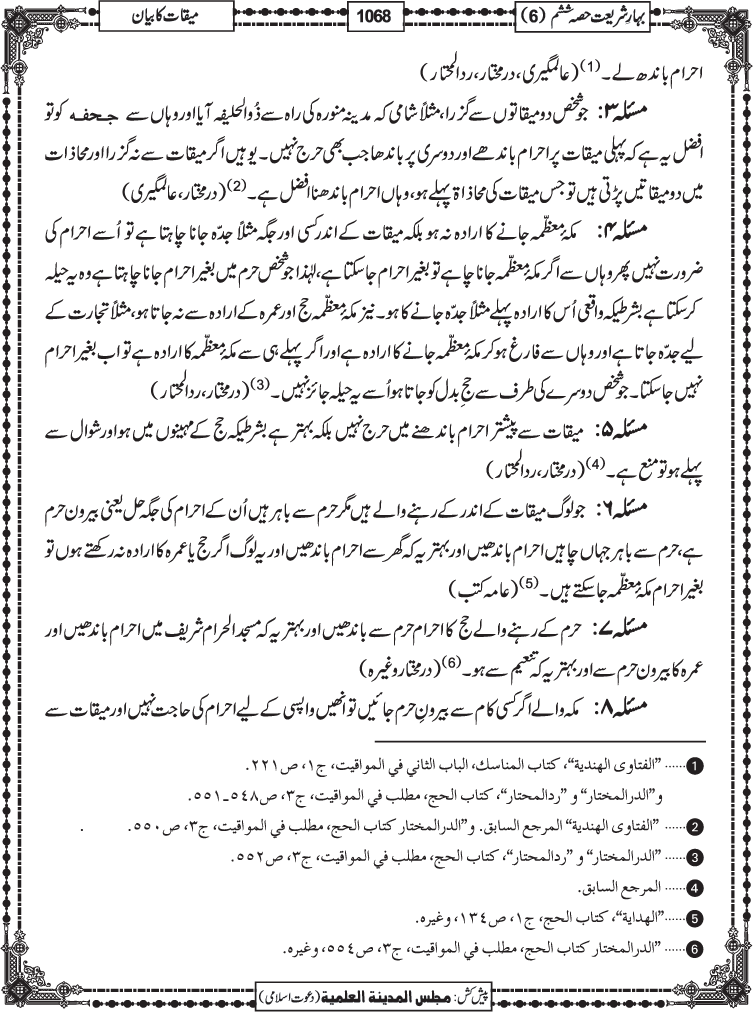 بہارِ شریعت حصہ ششم (6)
1068
میقات کا بیان
احرام باندھ لے۔(1) (عالمگیری، درمختار، ردالمحتار)
مسئلہ ۳: جو شخص دو میقاتوں سے گزرا، مثلاً شامی کہ مدینہ منورہ کی راہ سے ذُوالحلیفہ آیا اور وہاں سے جحفہ کو تو
افضل یہ ہے کہ پہلی میقات پر احرام باندھے اور دوسری پر باندھا جب بھی حرج نہیں۔ یوہیں اگر میقات سے نہ گزرا اور محاذات
میں دو میقاتیں پڑتی ہیں تو جس میقات کی محاذاۃ پہلے ہو، وہاں احرام باندھنا افضل ہے۔(2) (درمختار، عالمگیری)
مسئلہ ۴: مکہ معظّمہ جانے کا ارادہ نہ ہو بلکہ میقات کے اندر کسی اور جگہ مثلاً جدّہ جانا چاہتا ہے تو اُسے احرام کی
ضرورت نہیں پھر وہاں سے اگر مکہ معظّمہ جانا چاہے تو بغیر احرام جا سکتا ہے، لہٰذا جو شخص حرم میں بغیر احرام جانا چاہتا ہے وہ یہ حیلہ
کر سکتا ہے بشرطیکہ واقعی اُس کا ارادہ پہلے مثلاً جدّہ جانے کا ہو۔ نیز مکہ معظّمہ حج اور عمرہ کے ارادہ سے نہ جاتا ہو، مثلاً تجارت کے
لیے جدّہ جاتا ہے اور وہاں سے فارغ ہو کر مکہ معظّمہ جانے کا ارادہ ہے اور اگر پہلے ہی سے مکہ معظّمہ کا ارادہ ہے تو اب بغیر احرام
نہیں جا سکتا۔ جو شخص دوسرے کی طرف سے حجِ بدل کو جاتا ہو اُسے یہ حیلہ جائز نہیں۔(3) (درمختار، ردالمحتار)
مسئلہ ۵: میقات سے پیشتر احرام باندھنے میں حرج نہیں بلکہ بہتر ہے بشرطیکہ حج کے مہینوں میں ہو اور شوال سے
پہلے ہو تو منع ہے۔(4) (درمختار، ردالمحتار)
مسئلہ ۶: جو لوگ میقات کے اندر کے رہنے والے ہیں مگر حرم سے باہر ہیں اُن کے احرام کی جگہ حل یعنی بیرون حرم
ہے، حرم سے باہر جہاں چاہیں احرام باندھیں اور بہتر یہ کہ گھر سے احرام باندھیں اور یہ لوگ اگر حج یا عمرہ کا ارادہ نہ رکھتے ہوں تو
بغیر احرام مکہ معظّمہ جا سکتے ہیں۔(5) (عامہ کتب)
مسئلہ ۷: حرم کے رہنے والے حج کا احرام حرم سے باندھیں اور بہتر یہ کہ مسجد الحرام شریف میں احرام باندھیں اور
عمرہ کا بیرون حرم سے اور بہتر یہ کہ تنعیم سے ہو۔(6) (درمختار وغیرہ)
مسئلہ ۸: مکہ والے اگر کسی کام سے بیرونِ حرم جائیں تو اُنھیں واپسی کے لیے احرام کی حاجت نہیں اور میقات سے
1 ...... ”الفتاوی الهندية“، كتاب المناسك، الباب الثاني في المواقيت، ج١، ص٢٢١.
و”الدرالمختار“ و ”ردالمحتار“، كتاب الحج، مطلب في المواقيت، ج٣، ص٥٤٨ـ٥٥١.
2 ...... ”الفتاوی الهندية“ المرجع السابق. و”الدرالمختار كتاب الحج، مطلب في المواقيت، ج٣، ص٥٥٠.
3 ...... ”الدرالمختار“ و ”ردالمحتار“، كتاب الحج، مطلب في المواقيت، ج٣، ص٥٥٢.
4 ...... المرجع السابق.
5 ......”الهداية“، كتاب الحج، ج١، ص١٣٤، وغيره.
6 ...... ”الدرالمختار كتاب الحج، مطلب في المواقيت، ج٣، ص٥٥٤، وغيره.
پیش کش: مجلس المدینة العلمیة (دعوت اسلامی)